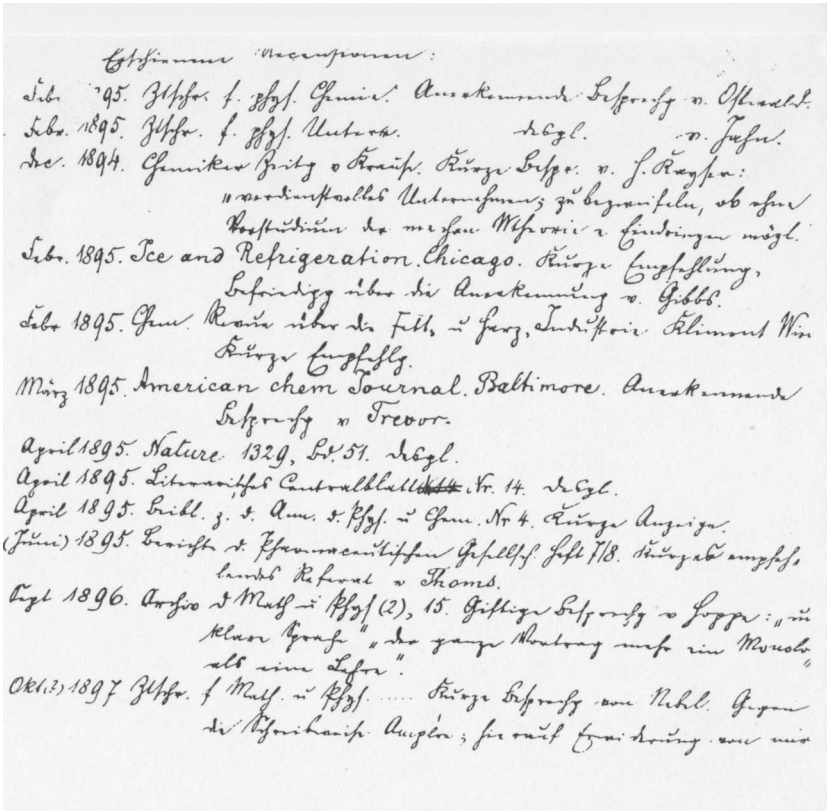 Erschienene Recensionen:
Febr 95. Ztschr. f. phys. Chemie. Anerkennende Besprechg v. Ostwald.
Febr. 1895. Ztschr. f. phys. Unterr. desgl. v. Jahn.
Dec. 1894. Chemiker Zeitg v Krause. Kurze Bespr. v. H. Kayser:
"verdienstvolles Unternehmen; zu bezweifeln, ob ohne
Vorstudium der mechan Wtheorie e Eindringen mögl.
Febr. 1895. Ice and Refrigeration. Chicago. Kurze Empfehlung,
Befriedigg über die Anerkennung v. Gibbs.
Febr 1895. Chem. Revue über die Fett- u Harz-Industrie. Kliment Wien
Kurze Empfehlg.
März 1895. American chem Journal. Baltimore. Anerkennende
Besprechg v Trevor.
April 1895. Nature 1329, Bd. 51. desgl.
April 1895. Literarisches Centralblatt Nr. 14. desgl.
April 1895. Beibl. z. d. Ann. d. Phys. u Chem. Nr 4. Kurze Anzeige.
(Juni) 1895. Berichte d. Pharmaceutischen Gesellsch. Heft 7/8. Kurzes empfeh-
lendes Referat v Thoms.
Sept 1896. Archiv d Math u Phys (2), 15. Giftige Besprechg v Hoppe: "un
klare Sprache" "der ganze Vortrag mehr ein Monolog
als eine Lehre".
Okt.(?) 1897 Ztschr. f Math. u Phys. ..... Kurze Besprechg von Nebel. Gegen
die Schreibweise Ampère; hierauf Erwiderung von mir